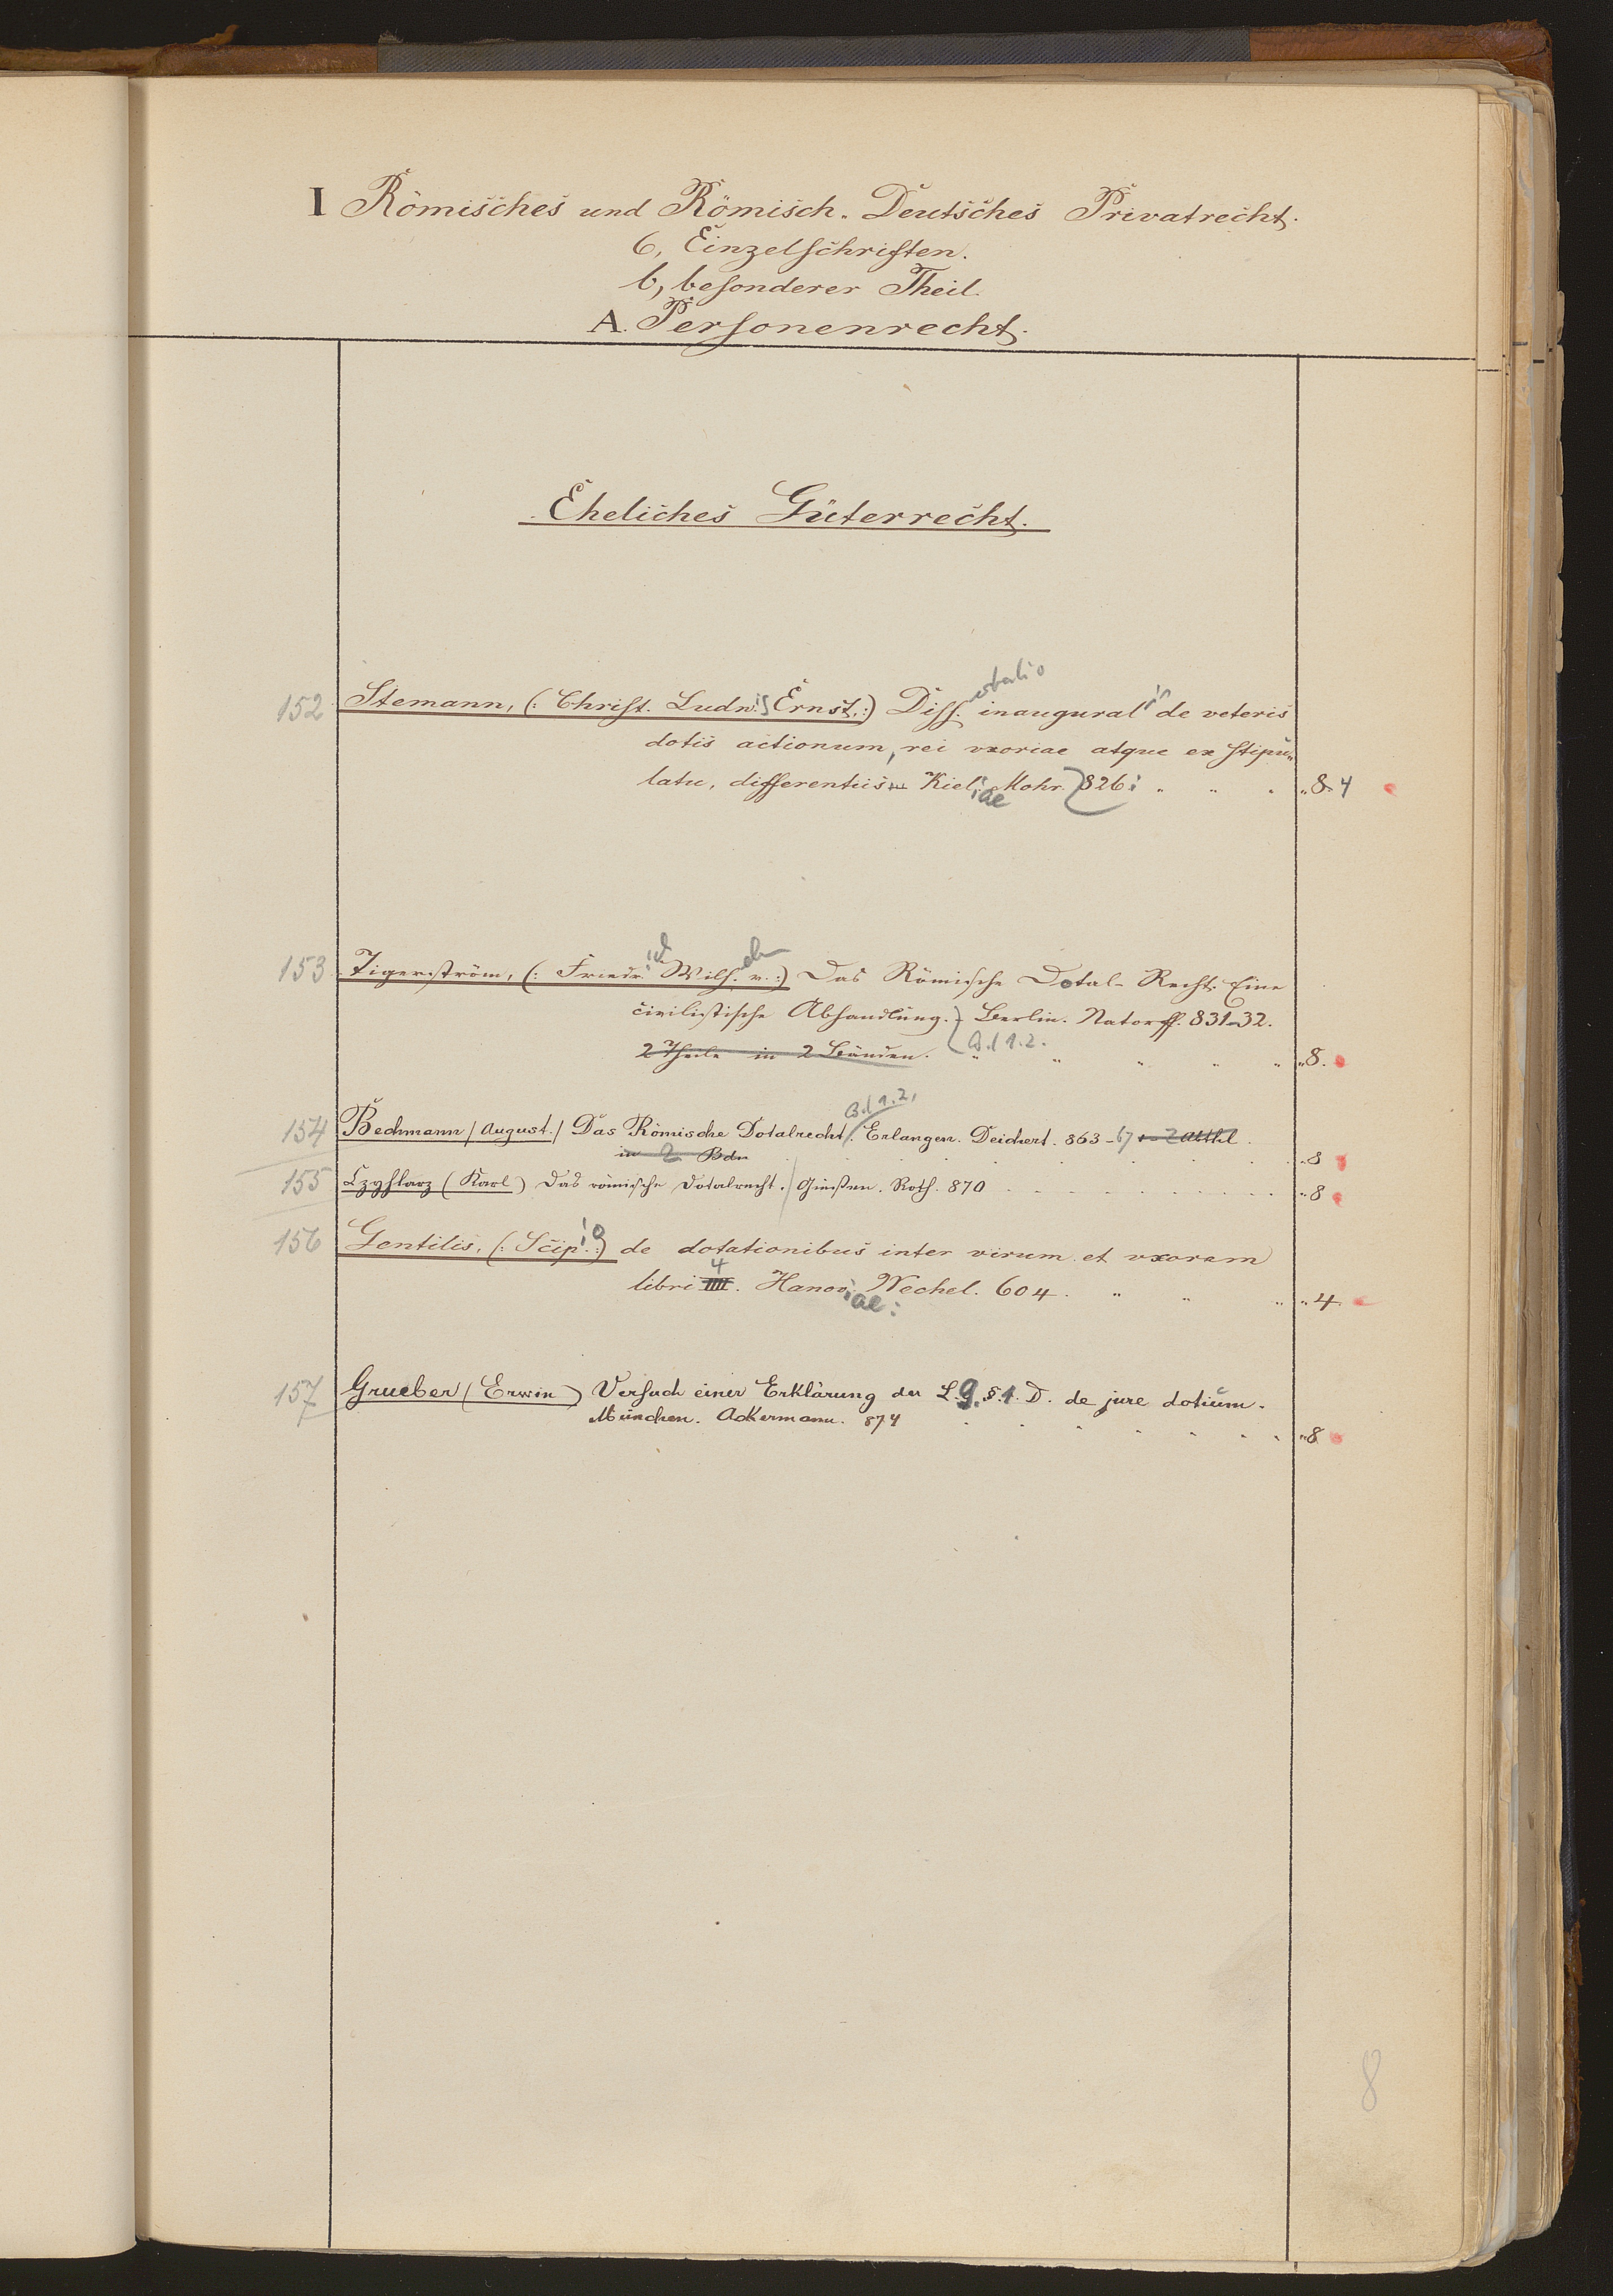 I Römisches und Römisch-Deutsches Privatrecht.
6, Einzelschriften.
b, besonderer Theil.
A. Personenrecht.
Eheliches Güterrecht.
152 Stemann, (: Christ. Ludw. Ernst :) Dissertatio inauguralis de veteris
dotis actionum, rei uxoriae atque ex stipu-
latu, differentiis Kiel: iae Mohr. 826: " " " 8. 4
153 Tigerström, (: Friedrich Wilh. v. :) Das Römische Dotal-Recht. Eine
civilistische Abhandlung. Berlin. Natorff. 831-32.
2 Theile in 2 Bänden. Bd 1.2. " " " " " 8.
Bd 1.2,
154 Bechmann / August. / Das Römische Dotalrecht. Erlangen. Deichert. 863-67
in 2 Bdn . . . . . . . 8
155 Czyhlarz (Karl) Das römische Dotalrecht. Gießen. Roth. 870 . . . . . . . . . . 8
156 Gentilis, (: Scipio :) de dotationibus inter virum et uxorem
libri IIII 4. Hanoviae: Wechel. 604. " " " 4.
157 Grueber (Erwin) Versuch einer Erklärung der L. 9. §. 1. D. de jure dotium.
München. Ackermann. 874 . . . . . . . 8
8